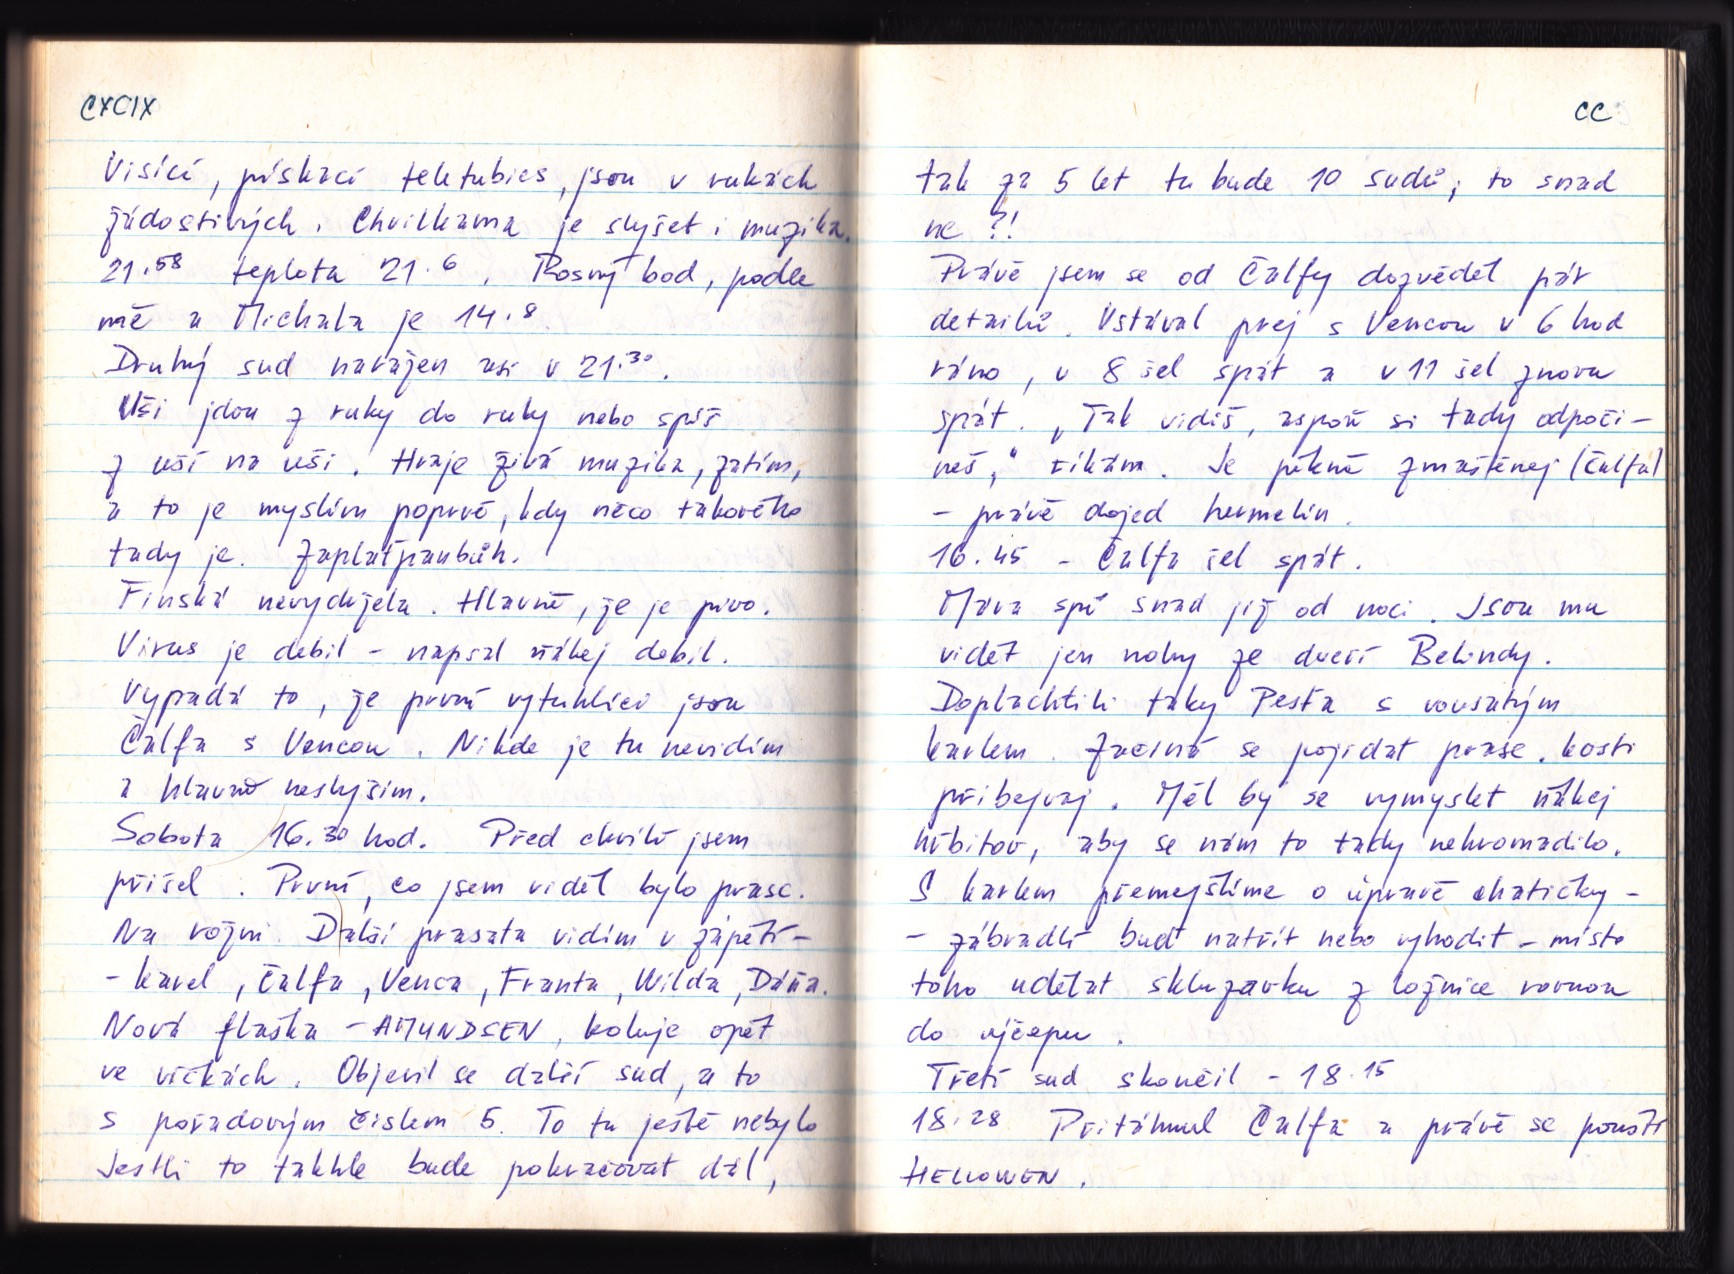 CXCIX
Visící, pískací teletubies, jsou v rukách
žádostivých. Chvilkama je slyšet i muzika.
21.58 teplota 21.6. Rosný bod, podle
mě a Michala je 14.8
Druhý sud naražen asi v 21.30.
Uši jdou z ruky do ruky nebo spíš
z uší na uši. Hraje živá muzika, zatím,
a to je myslím poprvé, kdy něco takového
tady je. Zaplaťpanbůh.
Finská nevydržela. Hlavně, že je pivo.
Virus je debil - napsal ňákej debil.
Vypadá to, že první vytuhlíci jsou
Čalfa s Vencou. Nikde je tu nevidím
a hlavně neslyším.
Sobota 16.30 hod. Před chvílí jsem
přišel. První, co jsem viděl bylo prase.
Na rožni. Další prasata vidím v zápětí-
- Karel, Čalfa, Venca, Franta, Wilda, Dáňa.
Nová flaška - AMUNDSEN, koluje opět
ve víčkách. Objevil se další sud, a to
s pořadovým číslem 5. To tu ještě nebylo
Jestli to takhle bude pokračovat dál,
CC
tak za 5 let tu bude 10 sudů, to snad
ne ?!
Právě jsem se od Čalfy dozvěděl pár
detailů. Vstával prej s Vencou v 6 hod
ráno, v 8 šel spát a v 11 šel znovu
spát. „Tak vidíš, aspoň si tady odpoči-
neš," říkám. Je pěkně zmaštěnej (Čalfa)
- právě dojed hermelín.
16.45 - Čalfa šel spát.
Máva spí snad již od noci. Jsou mu
vidět jen nohy ze dveří Belindy.
Doplachtili taky Pešťa s vousatým
Karlem. Začíná se pojídat prase. Kosti
přibejvaj. Měl by se vymyslet ňákej
hřbitov, aby se nám to tady nehromadilo.
S Karlem přemejšlíme o úpravě chatičky -
- zábradlí buď natřít nebo vyhodit - místo
toho udělat skluzavku z ložnice rovnou
do výčepu.
Třetí sud skončil - 18.15
18.28 Přitáhnul Čalfa a právě se pouští
HELLOWEN.